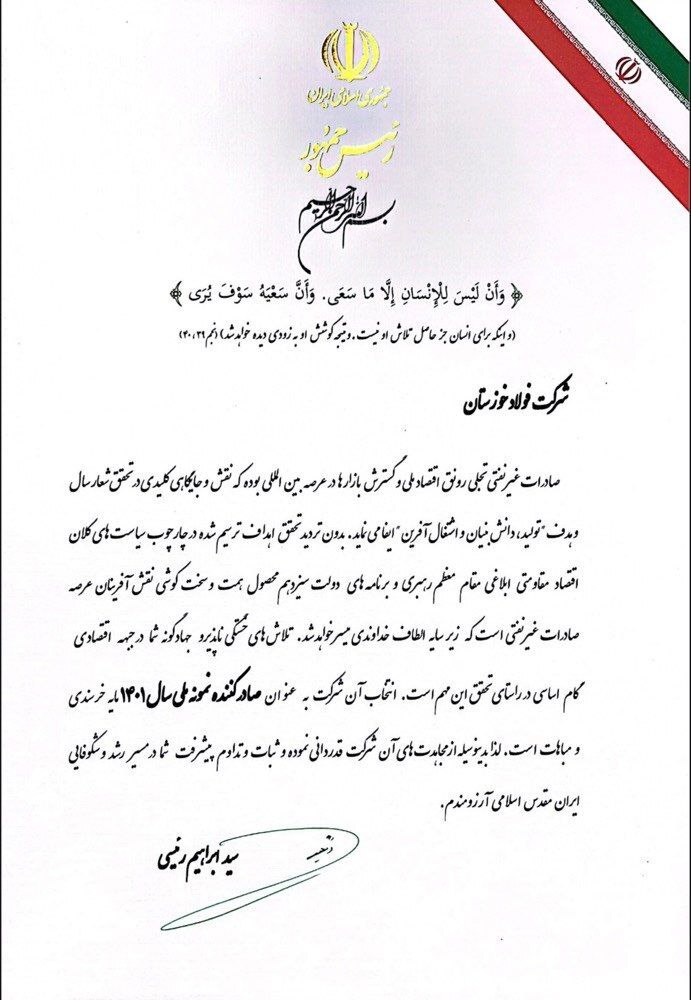 جمهوری اسلامی ایران
رئیس جمهور
بسم الله الرحمن الرحیم
﴿ وَأَنْ لَيْسَ لِلْإِنْسَانِ إِلَّا مَا سَعَى. وَأَنَّ سَعْيَهُ سَوْفَ يُرَى ﴾
(و اینکه برای انسان جز حاصل تلاش او نیست. و نتیجه کوشش او به زودی دیده خواهد شد) (نجم ۳۹، ۴۰)
شرکت فولاد خوزستان
صادرات غیرنفتی تجلی رونق اقتصاد ملی و گسترش بازارها در عرصه بین المللی بوده که نقش و جایگاهی کلیدی در تحقق شعار سال
و هدف "تولید، دانش بنیان و اشتغال آفرین" ایفا می نماید. بدون تردید تحقق اهداف ترسیم شده در چارچوب سیاست های کلان
اقتصاد مقاومتی ابلاغی مقام معظم رهبری و برنامه های دولت سیزدهم محصول همت و سخت کوشی نقش آفرینان عرصه
صادرات غیرنفتی است که زیر سایه الطاف خداوندی میسر خواهد شد. تلاش های خستگی ناپذیر و جهادگونه شما در جبهه اقتصادی
گام اساسی در راستای تحقق این مهم است. انتخاب آن شرکت به عنوان صادرکننده نمونه ملی سال ۱۴۰۱ مایه خرسندی
و مباهات است. لذا بدینوسیله از مجاهدت های آن شرکت قدردانی نموده و ثبات و تداوم پیشرفت شما در مسیر رشد و شکوفایی
ایران مقدس اسلامی آرزومندم.
سید ابراهیم رئیسی